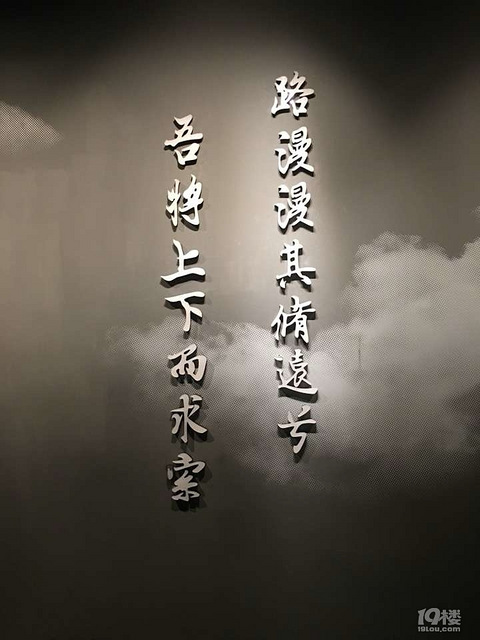 路漫漫其脩遠兮
吾将上下而求索
19楼
19lou.com